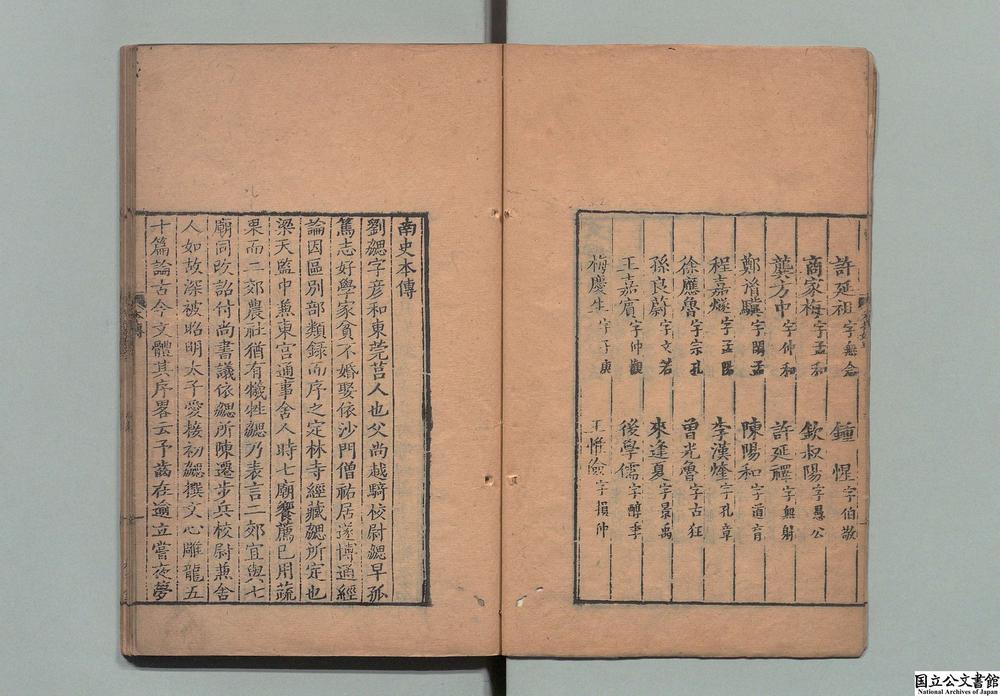 許延祖字無念 鍾惺字伯敬
商家梅字孟和 欽叔陽字愚公
龔方中字仲和 許延禪字無射
鄭胤驥字閑孟 陳陽和字道育
程嘉燧字孟陽 李漢煃字孔章
徐應魯字宗孔 曾光魯字古狂
孫良蔚字文若 來逢夏字景禹
王嘉賓字仲觀 後學儒字醇季
梅慶生字子庾 王惟儉字損仲
南史本傳
劉勰字彦和東莞莒人也父尚越騎校尉勰早孤
篤志好學家貧不婚娶依沙門僧祐居遂博通經
論因區別部類録而序之定林寺經藏勰所定也
梁天監中兼東宮通事舍人時七廟饗薦已用蔬
果而二郊農社猶有犧牲勰乃表言二郊宜與七
廟同改詔付尚書議依勰所陳遷步兵校尉兼舍
人如故深被昭明太子愛接初勰撰文心雕龍五
十篇論古今文體其序畧云予齒在逾立嘗夜夢
国立公文書館
National Archives of Japan